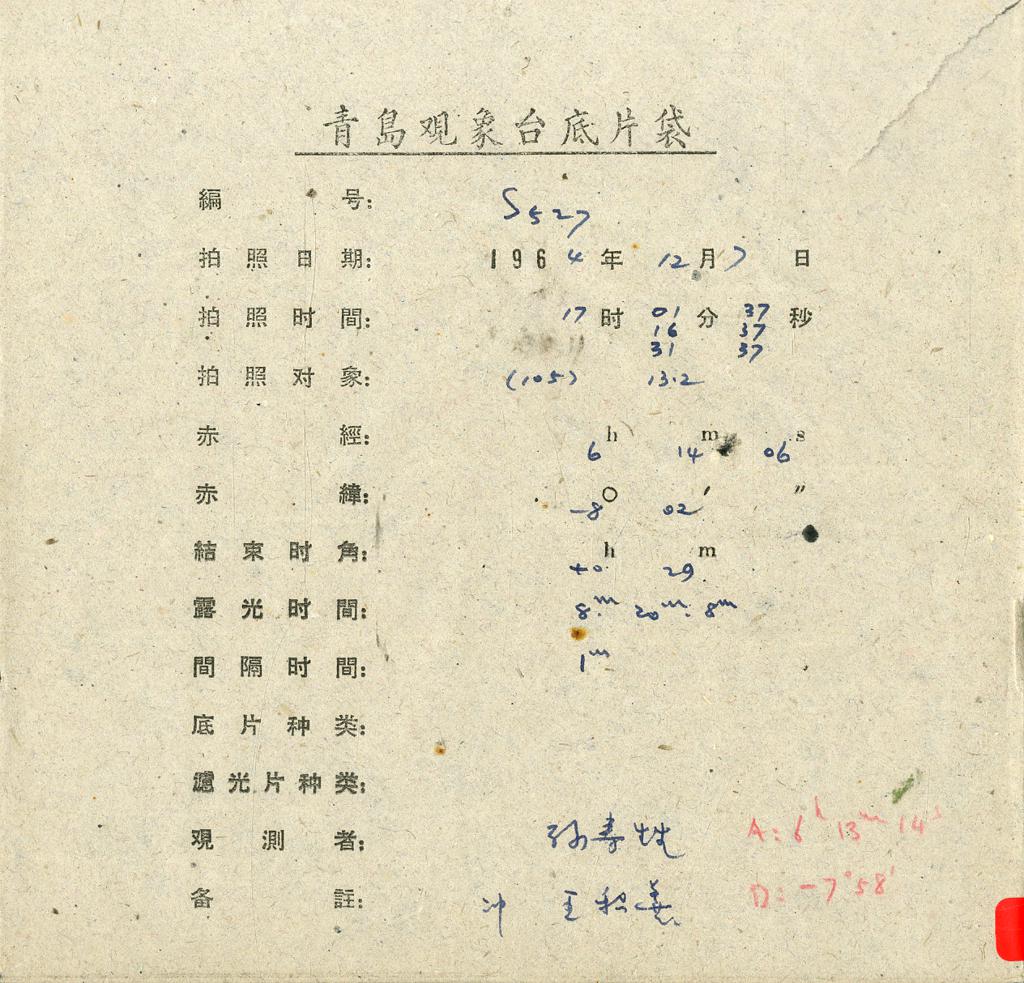 青島观象台底片袋
編号: S527
拍照日期: 1964年12月7日
拍照时間: 17时01分37秒
16 37
31 37
拍照对象: (105) 13.2
赤經: 6h 14m 06s
赤緯: -8° 02′ ″
結束时角: +0h 29m
露光时間: 8m 20m 8m
間隔时間: 1m
底片种类:
濾光片种类:
观測者: 孙寿
A: 6h 13m 14s
备註: 冲 王
D: -7°58′